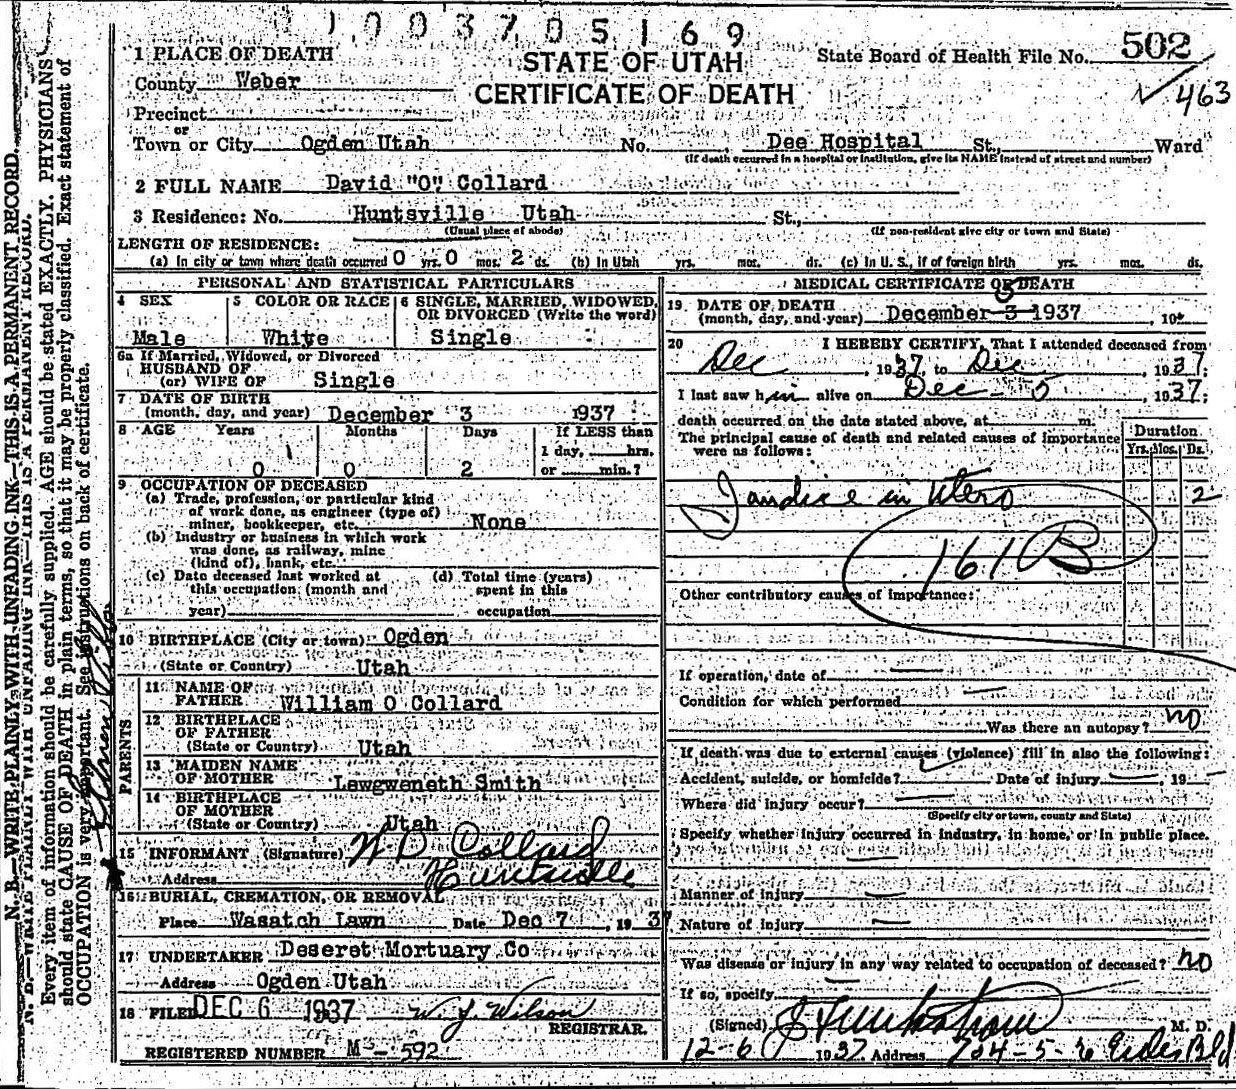 1003705169
1 PLACE OF DEATH
STATE OF UTAH
State Board of Health File No. 502
County Weber
CERTIFICATE OF DEATH
463
Precinct
or
Town or City Ogden Utah No. Dee Hospital St., Ward
(If death occurred in a hospital or institution, give its NAME instead of street and number)
2 FULL NAME David "O" Collard
3 Residence: No. Huntsville Utah St.,
(Usual place of abode) (If non-resident give city or town and State)
LENGTH OF RESIDENCE:
(a) In city or town where death occurred 0 yrs. 0 mos. 2 ds. (b) In Utah yrs. mos. ds. (c) In U. S., if of foreign birth yrs. mos. ds.
PERSONAL AND STATISTICAL PARTICULARS
4 SEX 5 COLOR OR RACE 6 SINGLE, MARRIED, WIDOWED,
OR DIVORCED (Write the word)
Male White Single
6a If Married, Widowed, or Divorced
HUSBAND OF
(or) WIFE OF Single
7 DATE OF BIRTH
(month, day, and year) December 3 1937
8 AGE Years Months Days If LESS than
1 day, hrs.
0 0 2 or min.?
9 OCCUPATION OF DECEASED
(a) Trade, profession, or particular kind
of work done, as engineer (type of)
miner, bookkeeper, etc. None
(b) Industry or business in which work
was done, as railway, mine
(kind of), bank, etc.
(c) Date deceased last worked at (d) Total time (years)
this occupation (month and spent in this
year) occupation
10 BIRTHPLACE (City or town) Ogden
(State or Country) Utah
PARENTS
11 NAME OF
FATHER William O Collard
12 BIRTHPLACE
OF FATHER
(State or Country) Utah
13 MAIDEN NAME
OF MOTHER Lewgweneth Smith
14 BIRTHPLACE
OF MOTHER
(State or Country) Utah
15 INFORMANT (Signature) W O Collard
Address Huntsville
16 BURIAL, CREMATION, OR REMOVAL
Place Wasatch Lawn Date Dec 7, 1937
17 UNDERTAKER Deseret Mortuary Co
Address Ogden Utah
18 FILED DEC 6 1937 W. J. Wilson
REGISTRAR.
REGISTERED NUMBER M-592
MEDICAL CERTIFICATE OF DEATH
19 DATE OF DEATH 5
(month, day, and year) December 3 1937, 19
20 I HEREBY CERTIFY, That I attended deceased from
Dec, 1937, to Dec, 1937;
I last saw him alive on Dec - 5, 1937;
death occurred on the date stated above, at m.
The principal cause of death and related causes of importance
were as follows:
Duration
Yrs. Mos. Ds.
Jandice in Utero 2
161B
Other contributory causes of importance:
If operation, date of
Condition for which performed
Was there an autopsy? no
If death was due to external causes (violence) fill in also the following:
Accident, suicide, or homicide? Date of injury, 19
Where did injury occur?
(Specify city or town, county and State)
Specify whether injury occurred in industry, in home, or in public place.
Manner of injury
Nature of injury
Was disease or injury in any way related to occupation of deceased? no
If so, specify
(Signed) M. D.
12-6 1937 Address 704-5-6 Eccles Bld
N. B.—WRITE PLAINLY WITH UNFADING INK—THIS IS A PERMANENT RECORD.
Every item of information should be carefully supplied. AGE should be stated EXACTLY. PHYSICIANS
should state CAUSE OF DEATH in plain terms, so that it may be properly classified. Exact statement of
OCCUPATION is very important. See instructions on back of certificate.